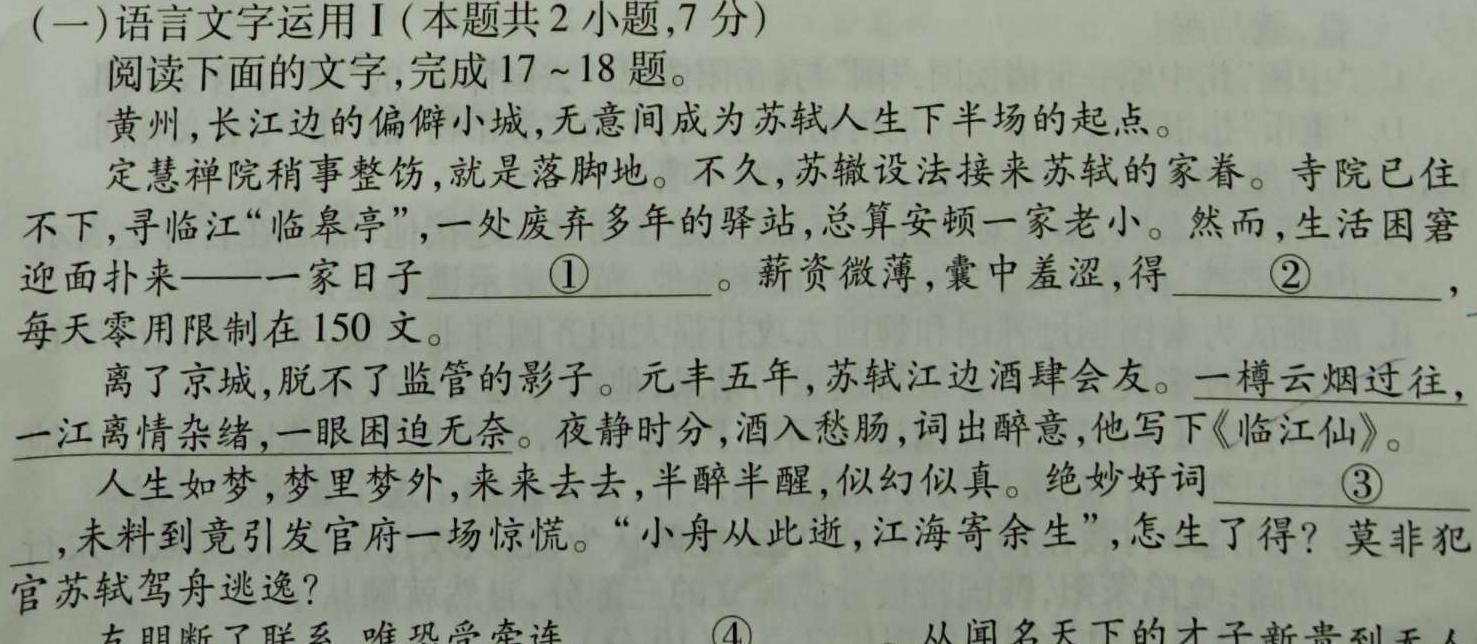 (一)语言文字运用Ⅰ(本题共2小题,7分)
阅读下面的文字,完成17~18题。
黄州,长江边的偏僻小城,无意间成为苏轼人生下半场的起点。
定慧禅院稍事整饬,就是落脚地。不久,苏辙设法接来苏轼的家眷。寺院已住
不下,寻临江“临皋亭”,一处废弃多年的驿站,总算安顿一家老小。然而,生活困窘
迎面扑来——一家日子____①____。薪资微薄,囊中羞涩,得____②____,
每天零用限制在150文。
离了京城,脱不了监管的影子。元丰五年,苏轼江边酒肆会友。一樽云烟过往,
一江离情杂绪,一眼困迫无奈。夜静时分,酒入愁肠,词出醉意,他写下《临江仙》。
人生如梦,梦里梦外,来来去去,半醉半醒,似幻似真。绝妙好词____③____
_,未料到竟引发官府一场惊慌。“小舟从此逝,江海寄余生”,怎生了得?莫非犯
官苏轼驾舟逃逸?
友朋断了联系,唯恐受牵连,____④____。从闻名天下的才子新贵到无人